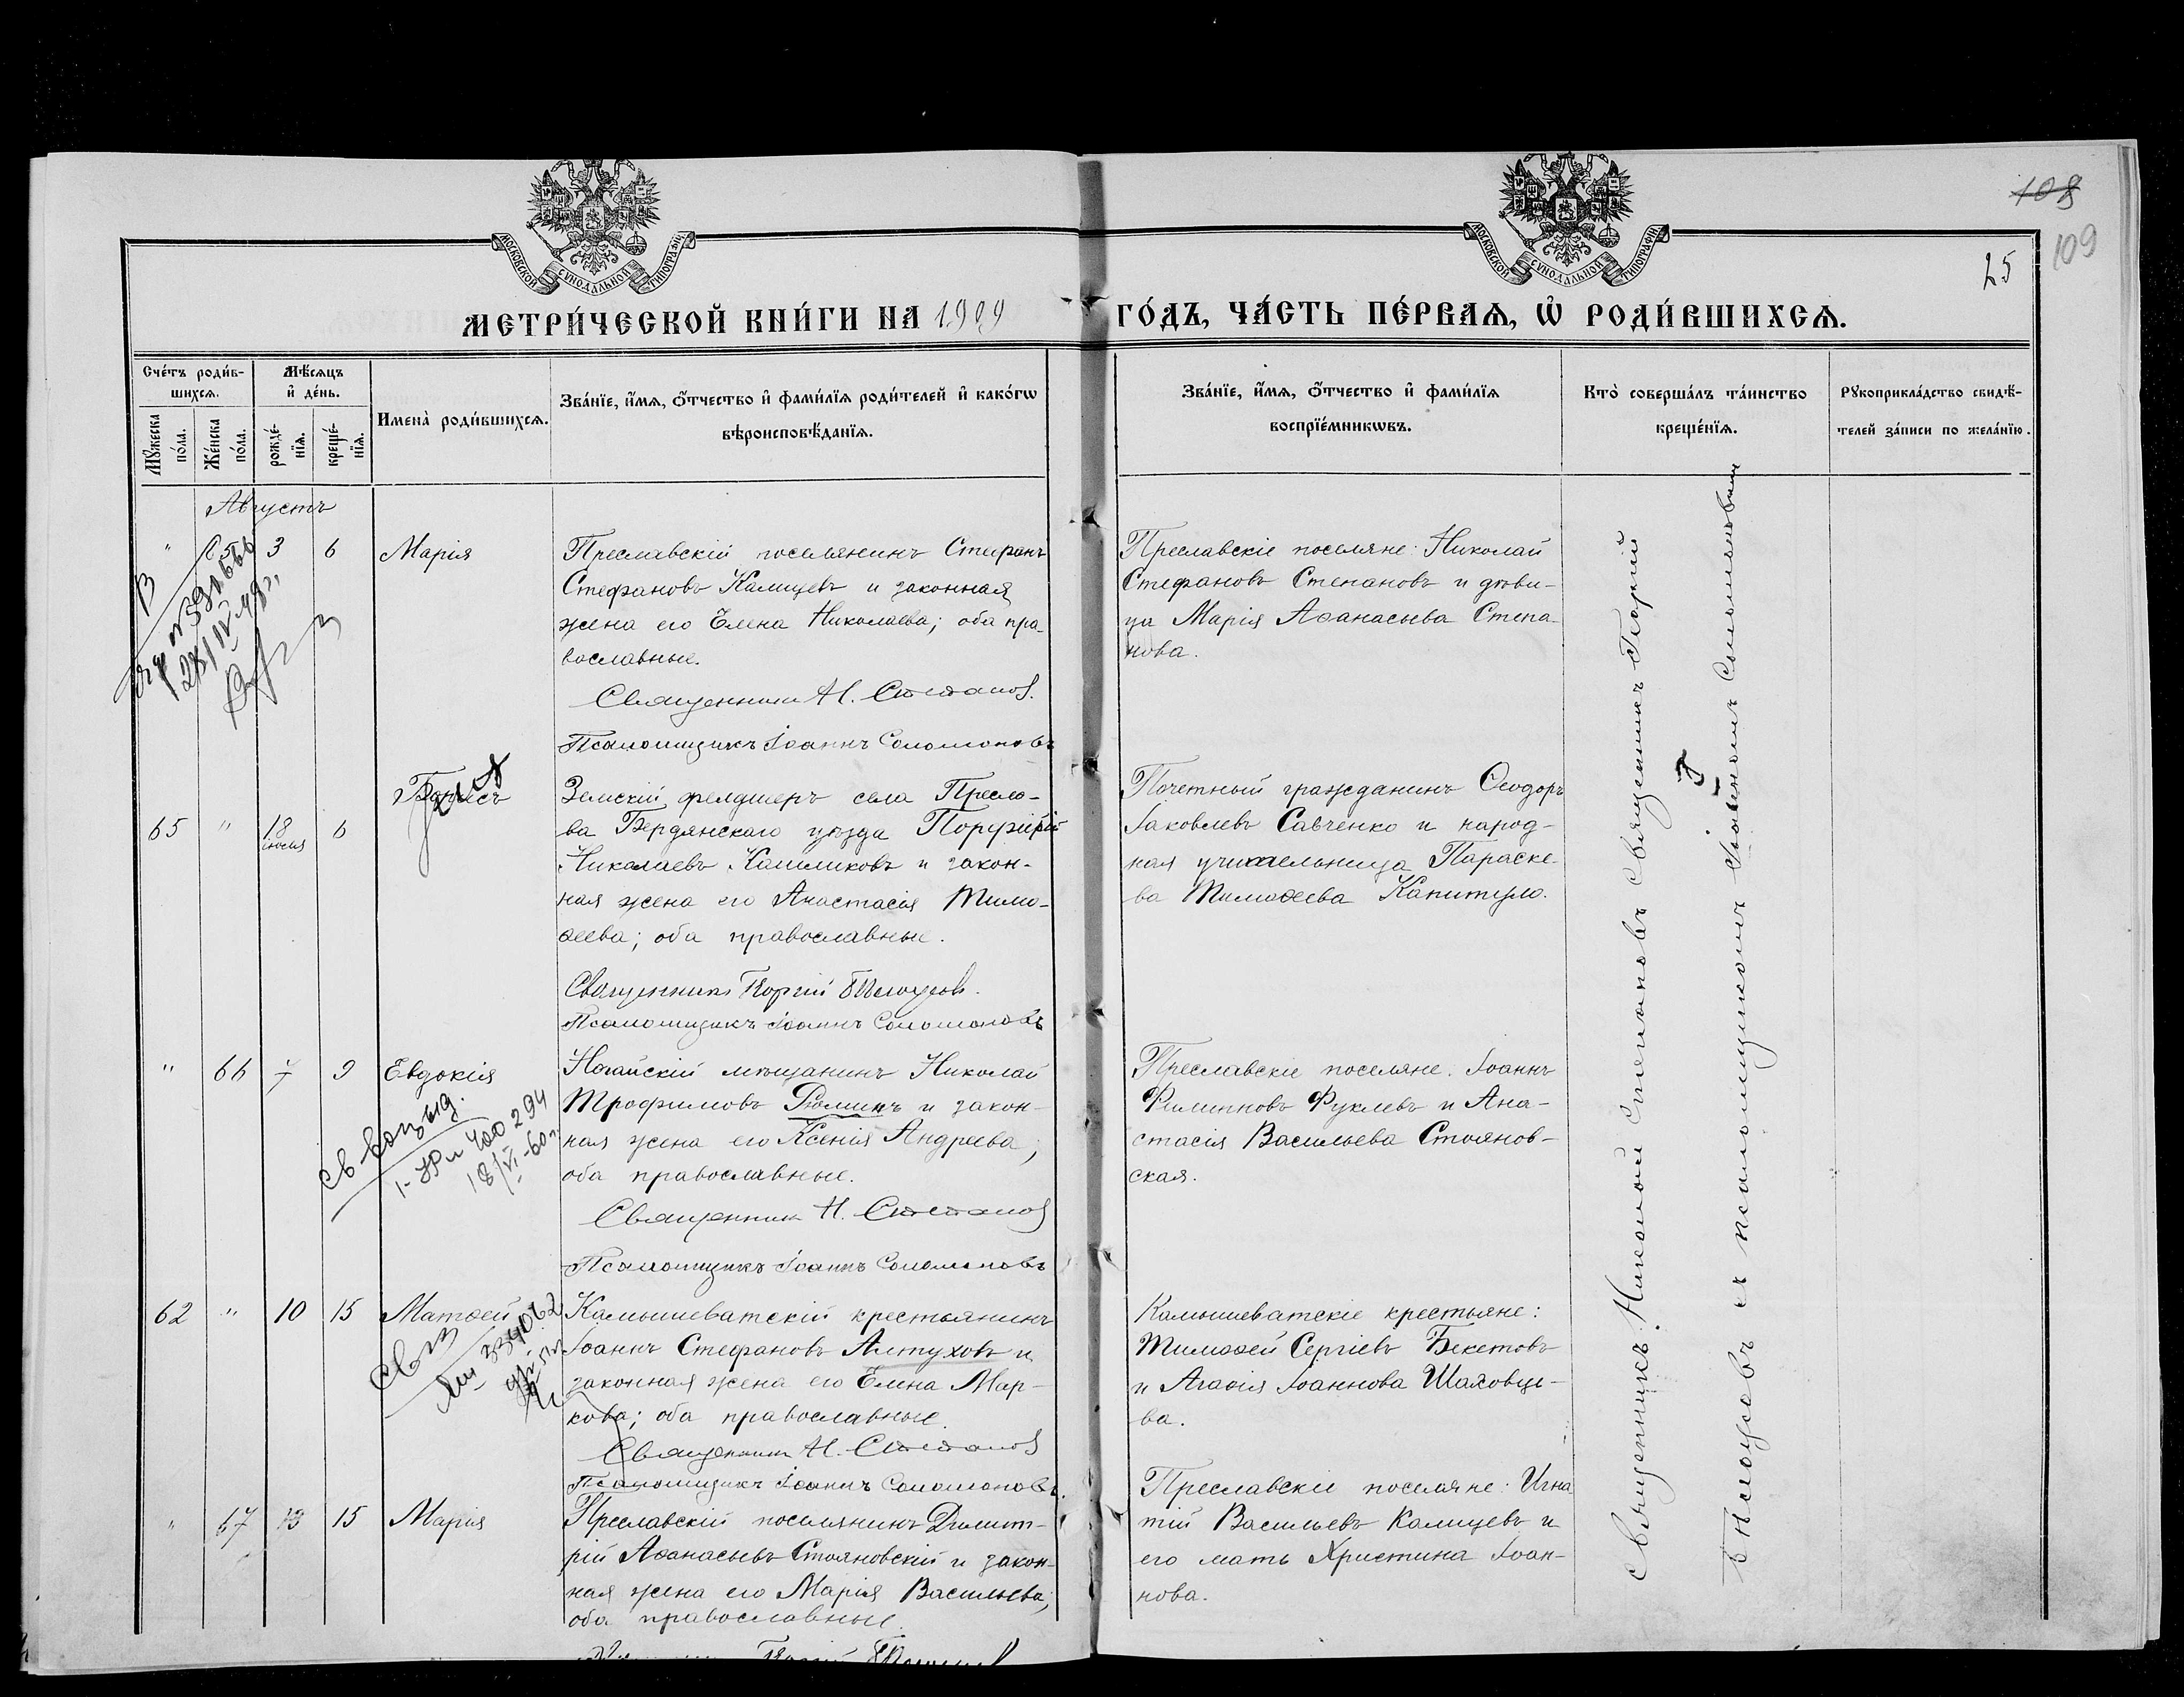 108
109
25
МОСКОВСКОЙ СѴНОДАЛЬНОЙ ТИПОГРАФІИ
МОСКОВСКОЙ СѴНОДАЛЬНОЙ ТИПОГРАФІИ
МЕТРИ́ЧЕСКОЙ КНИ́ГИ НА 1909 ГО́ДЪ, ЧА́СТЬ ПЕ́РВАѦ, Ѽ РОДИ́ВШИХСѦ.
Сче́тъ роди́в-
шихсѧ.
Мꙋ́жеска по́ла.
Же́нска по́ла.
Мѣ́сѧцъ и҆ де́нь.
рожде́-нїѧ.
креще́-нїѧ.
Имена̀ роди́вшихсѧ.
Зва́нїе, и҆́мѧ, ѻ҆́тчество и҆ фами́лїѧ роди́телей и҆ како́гѡ
вѣроисповѣ́данїѧ.
Зва́нїе, и҆́мѧ, ѻ҆́тчество и҆ фами́лїѧ
воспрїе́мникѡвъ.
Кто̀ соверша́лъ та́инство
креще́нїѧ.
Рꙋкоприкла́дство свидѣ́-
телей за́писи по жела́нїю.
Августъ
" 65 3 6 Марія
Преславскій поселянинъ Стефанъ
Стефановъ Калицевъ и законная
жена его Елена Николаева; оба пра-
вославные.
Священникъ Н. Степанов.
Псаломщикъ Іоаннъ Соломоновъ
Преславскіе поселяне: Николай
Стефановъ Степановъ и дѣви-
ца Марія Аѳанасьева Степа-
нова.
65 " 18 іюля 6 Борисъ
Земскій фелдшеръ села Пресла-
ва Бердянскаго уѣзда Порфирій
Николаевъ Кашликовъ и закон-
ная жена его Анастасія Тимо-
ѳеева; оба православные.
Священникъ Георгій Бѣлоусов.
Псаломщикъ Іоаннъ Соломоновъ
Почетный гражданинъ Ѳеодоръ
Іаковлевъ Савченко и народ-
ная учительница Параске-
ва Тимоѳеева Капитуло.
" 66 7 9 Евдокія
Св-во выд.
400294
18/VI-60г.
Ногайскій мѣщанинъ Николай
Трофимовъ Рюминъ и закон-
ная жена его Ксенія Андреева;
оба православные.
Священник Н. Степанов
Псаломщикъ Іоаннъ Соломоновъ
Преславскіе поселяне: Іоаннъ
Филипповъ Фуклевъ и Ана-
стасія Васильева Стоянов-
ская.
62 " 10 15 Матѳей
334062
Камышеватскій крестьянинъ
Іоаннъ Стефановъ Алтуховъ и
законная жена его Елена Мар-
кова; оба православные.
Священникъ Н. Степанов
Псаломщикъ Іоаннъ Соломоновъ.
Камышеватскіе крестьяне:
Тимоѳей Сергіевъ Бекетовъ
и Агаѳія Іоаннова Шаховце-
ва.
" 67 13 15 Марія
Преславскій поселянинъ Димит-
рій Аѳанасьевъ Стояновскій и закон-
ная жена его Марія Васильева;
оба православные.
Преславскіе поселяне: Игна
тій Васильевъ Калицевъ и
его мать Христина Іоан-
нова.
Священникъ Николай Степановъ священникъ Георгій
Бѣлоусовъ съ псаломщикомъ Іоанномъ Соломоновым